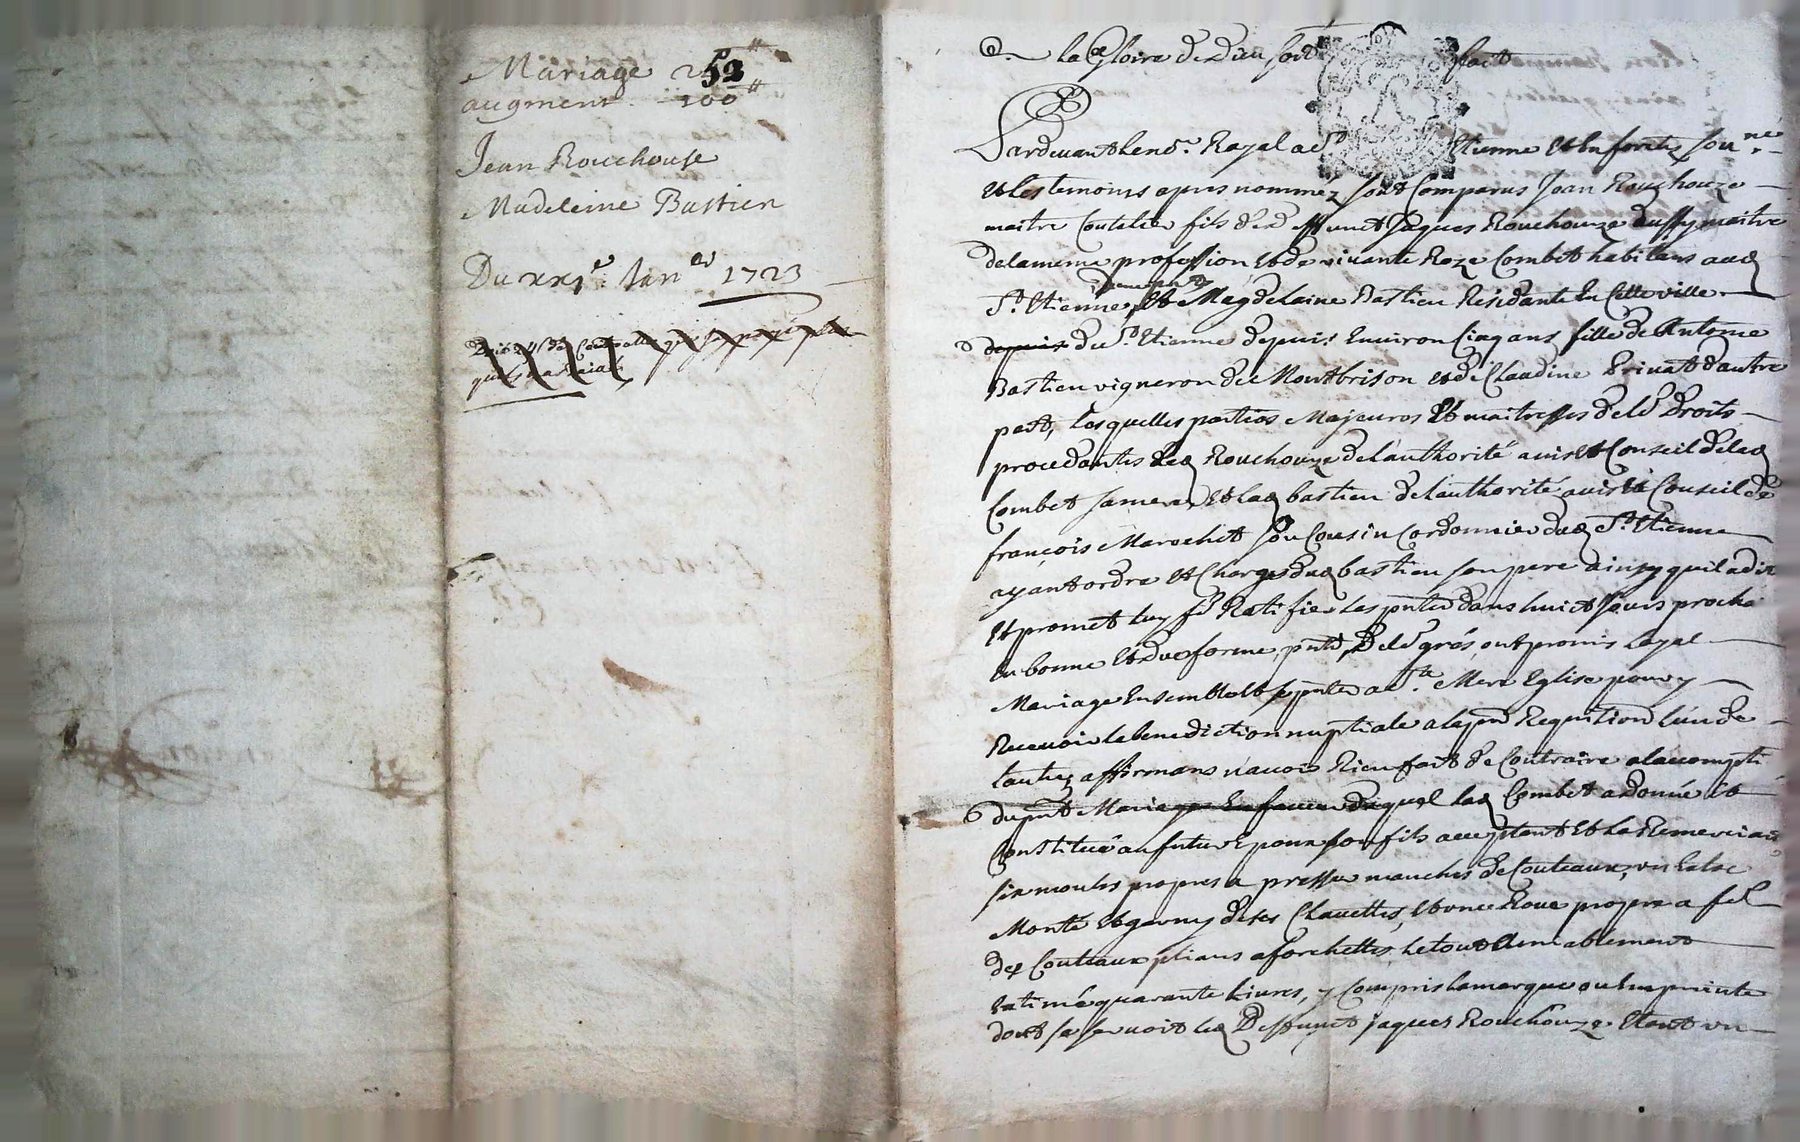 Mariage 252
augment. 100
Jean Rouchouse
Madeleine Bastien
Du xxje. Janer 1723
a la Gloire de Dieu soit fait
Pardevant le nore. Royal a St Etienne Et en forests sousné
et les temoins apres nommez sont Comparus Jean Rouchouze
maitre Coutelier fils de deffunct Jaques Rouchouze aussy maitre
de la meme profession et de vivante Roze Combet habitans aud
St. Etienne, d'une part Et Magdelaine Bastien Residante En Cette ville
depuis du St. Etienne depuis Environ Cinq ans fille de Antoine
Bastien vigneron de Montbrison et de Claudine Privat d'autre
part, Lesquelles parties Majeures Et maitresses de leurs Droits
procedantes led Rouchouze de l'authorité avis et Conseil de lad
Combet sa mere, Et lad bastien de l'authorité avis et Conseil de
françois Marochet son Cousin Cordonnier dud St. Etienne
ayant ordre et Charge dud bastien son pere ainsy qu'il a dit
Et promet luy fe Ratifier Les pntes dans huict Jours proche
En bonne Et due forme, de leur grés ont promis Loyal
Mariage Ensemble Et se pnter a Ste. Mere Eglise pour y
Recevoir la benediction nuptiale a la pre Requition L'un de
l'autre, affirmans n'avoir Rien fait de Contraire a l'accompt
du pnt Mariage En faveur duquel lad Combet a donné et
Constitué au futur Epoux son fils acceptant Et la Remerciant
six moules propres a presser manches de Couteaux, un
Monté Et garny de ses Clavettes, Et une Roue propre a
des Couteaux plians a forchettes, Le tout Amiablement
Estimé quarante Livres, y Compris la marque ou Empreinte
dont se servoit led Deffunct Jaques Rouchouze Etant un